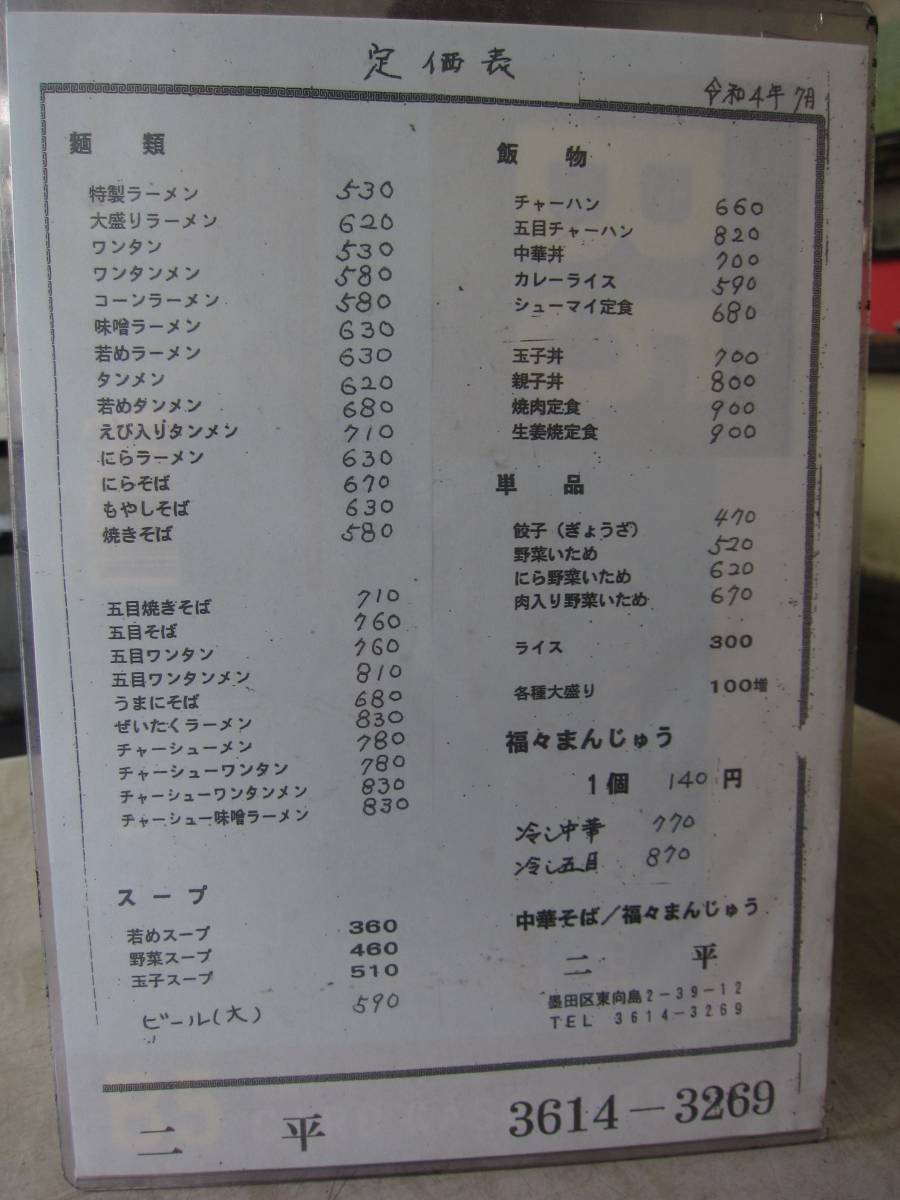 定価表
令和4年7月
麺類
特製ラーメン 530
大盛りラーメン 620
ワンタン 530
ワンタンメン 580
コーンラーメン 580
味噌ラーメン 630
若めラーメン 630
タンメン 620
若めタンメン 680
えび入りタンメン 710
にらラーメン 630
にらそば 670
もやしそば 630
焼きそば 580
五目焼きそば 710
五目そば 760
五目ワンタン 760
五目ワンタンメン 810
うまにそば 680
ぜいたくラーメン 830
チャーシューメン 780
チャーシューワンタン 780
チャーシューワンタンメン 830
チャーシュー味噌ラーメン 830
スープ
若めスープ 360
野菜スープ 460
玉子スープ 510
ビール(大) 590
飯物
チャーハン 660
五目チャーハン 820
中華丼 700
カレーライス 590
シューマイ定食 680
玉子丼 700
親子丼 800
焼肉定食 900
生姜焼定食 900
単品
餃子(ぎょうざ) 470
野菜いため 520
にら野菜いため 620
肉入り野菜いため 670
ライス 300
各種大盛り 100増
福々まんじゅう
1個 140円
冷し中華 770
冷し五目 870
中華そば/福々まんじゅう
二平
墨田区東向島2-39-12
TEL 3614-3269
二平 3614-3269